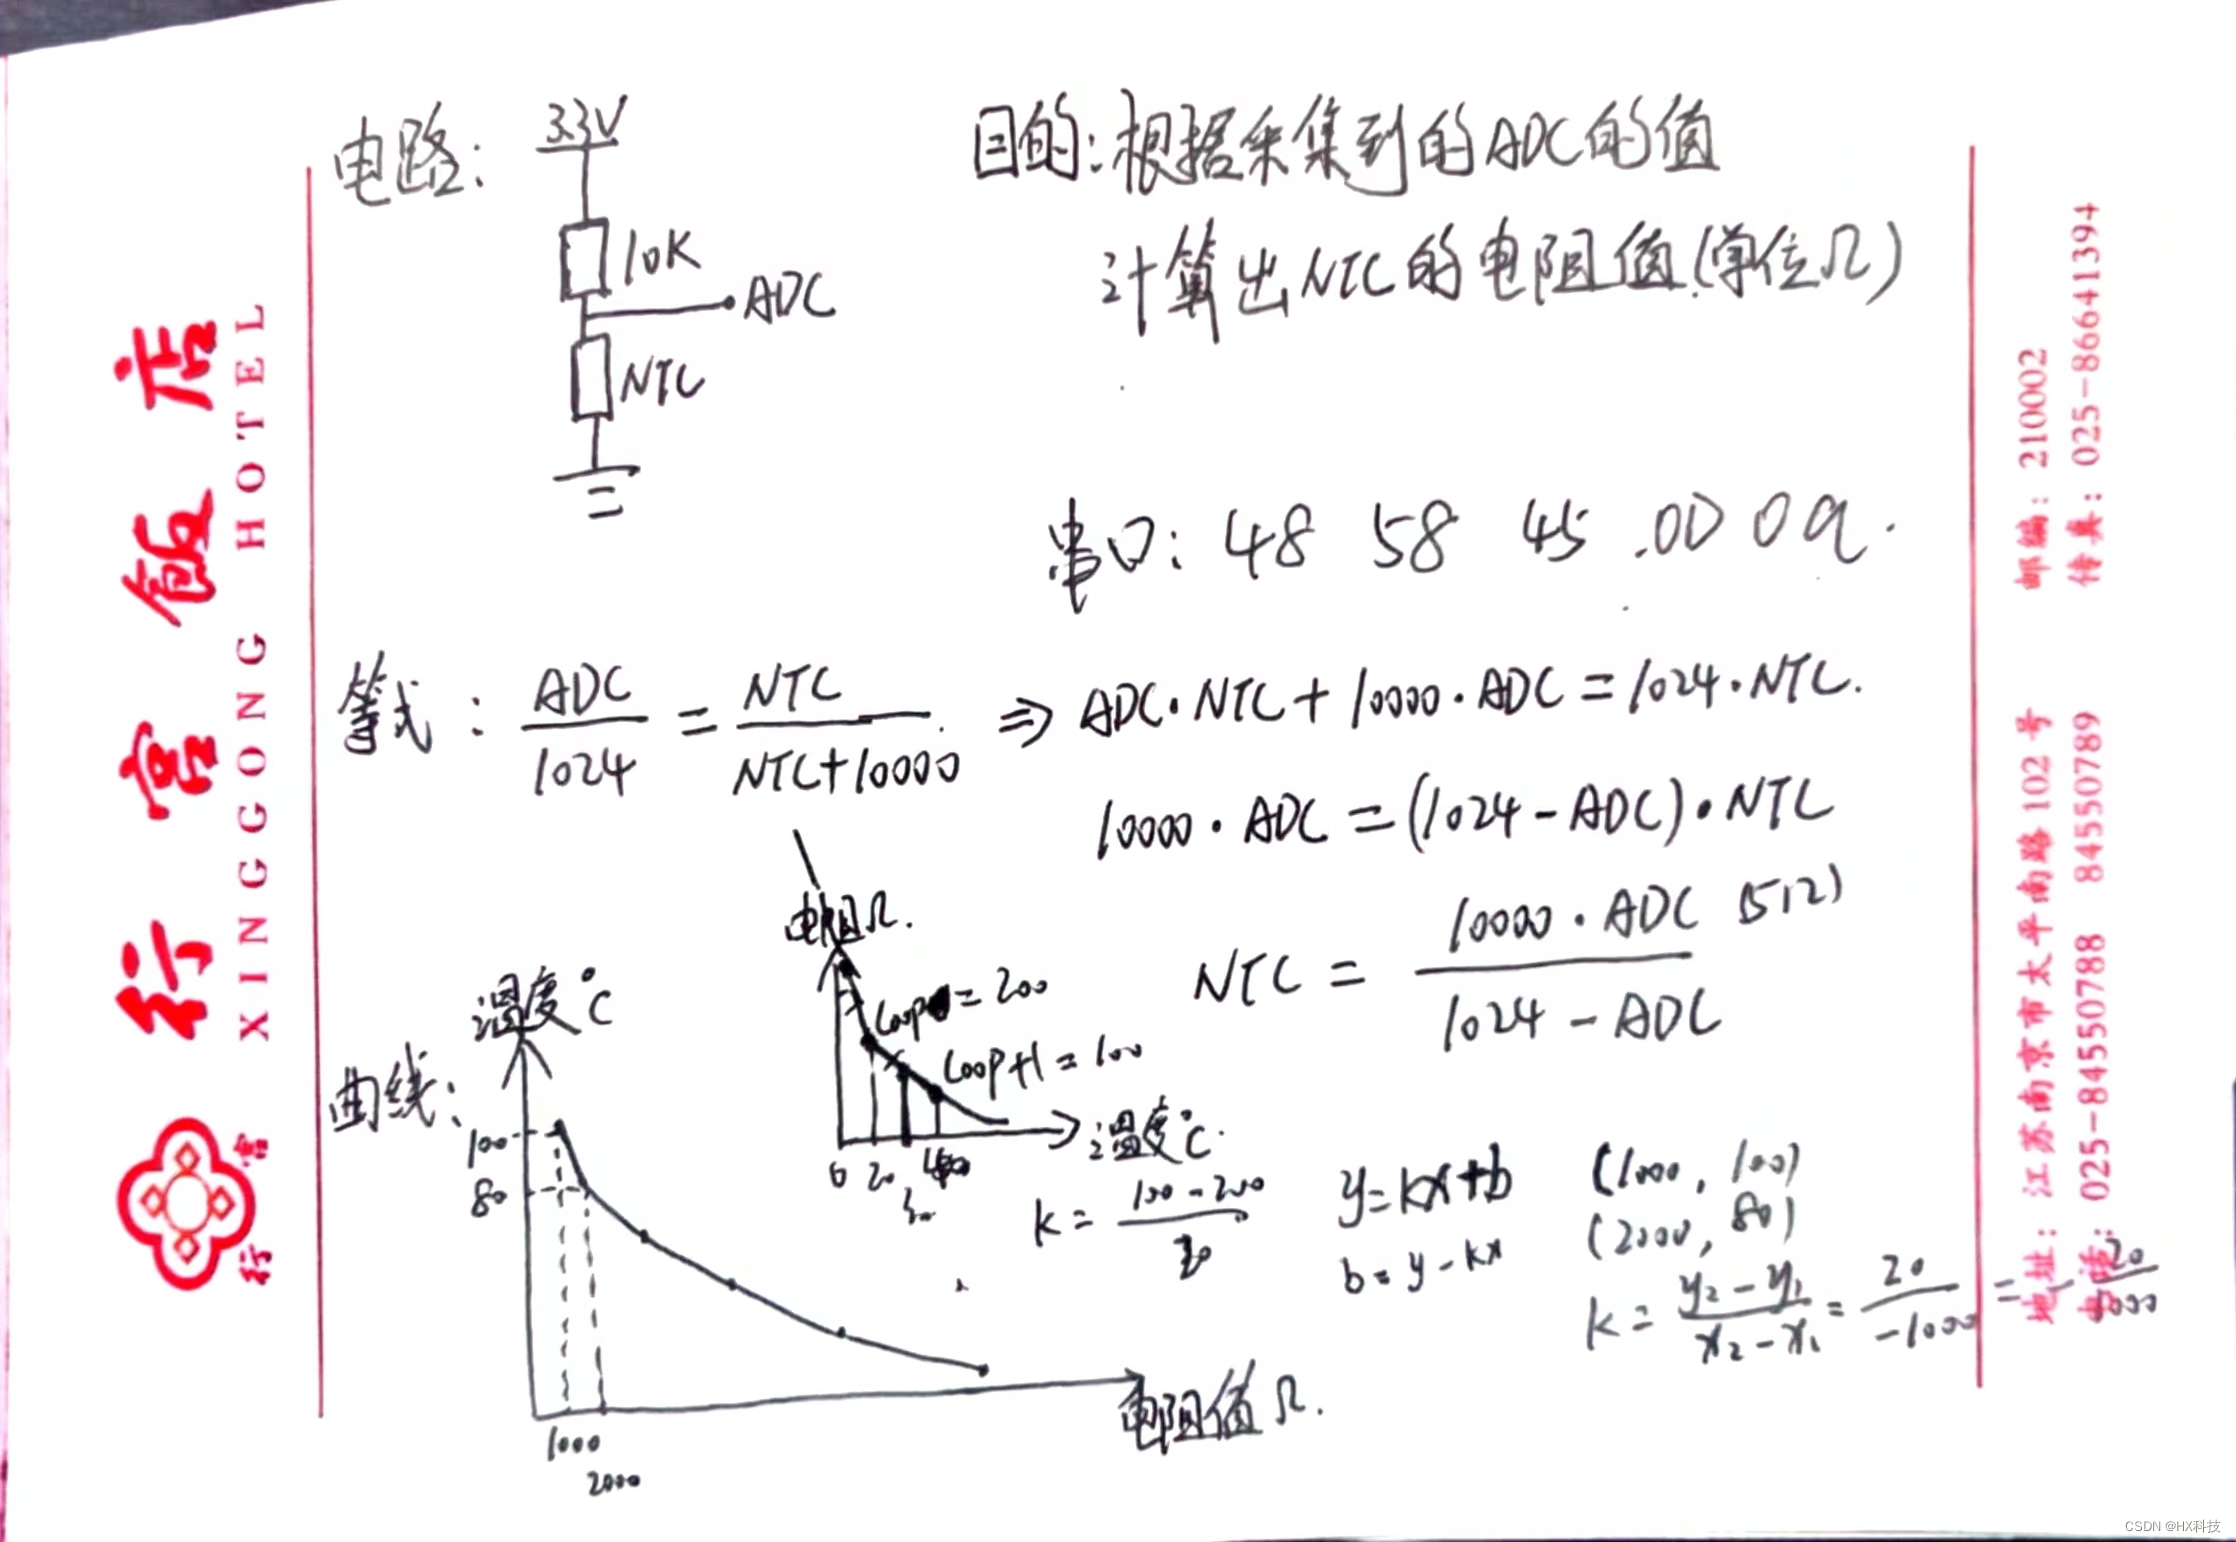 电路：
3.3V
10K
ADC
NTC
目的：根据采集到的ADC的值
计算出NTC的电阻值（单位Ω）
串口：48 58 45 .0D 0a.
等式：ADC/1024 = NTC/(NTC+10000) ⇒ ADC·NTC+10000·ADC=1024·NTC.
10000·ADC=(1024-ADC)·NTC
NTC = 10000·ADC/(1024-ADC)
512)
电阻Ω.
loop=200
loop+1=100
0 20
温度℃.
k=(100-200)/
曲线：
温度℃
100
80
1000
2000
电阻值Ω.
y=kx+b
b=y-kx
(1000, 100)
(2000, 80)
k=(y₂-y₁)/(x₂-x₁)=20/-1000=-20/1000
行宫饭店
XINGGONG HOTEL
行宫
地址：江苏南京市太平南路102号 邮编：210002
电话：025-84550788 84550789 传真：025-86641394
CSDN @HX科技